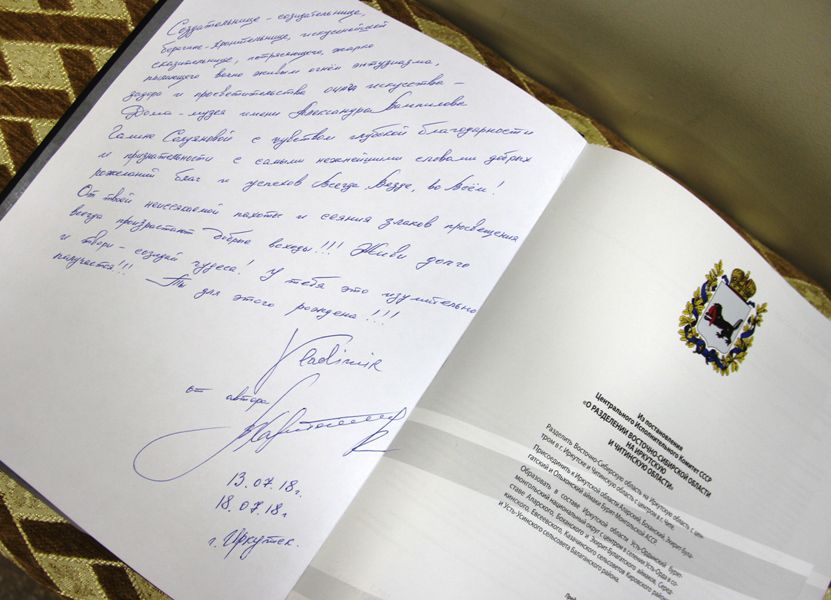 Создательнице - созидательнице,
берегине-хранительнице, искуснейшей
сказительнице, потрясающего, жарко
пылающего вечно живым огнём энтузиазма,
задора и просветительства очага искусства -
Дома-музея имени Александра Вампилова
Галине Солуяновой с чувством глубокой благодарности
и признательности с самыми нежнейшими словами добрых
пожеланий благ и успехов Всегда, Везде, во Всём!
От твоей неиссякаемой пахоты и сеяния злаков просвещения
всегда произрастают добрые всходы!!! Живи долго
и твори - созидай чудеса! У тебя это изумительно
получается!!! Ты для этого рождена!!!
Vladimir
от автора
13.07.18г.
18.07.18г
г. Иркутск.
Из постановления
Центрального Исполнительного Комитет СССР
«О РАЗДЕЛЕНИИ ВОСТОЧНО-СИБИРСКОЙ ОБЛАСТИ
НА ИРКУТСКУЮ
И ЧИТИНСКУЮ ОБЛАСТИ»
Разделить Восточно-Сибирскую область на Иркутскую область с цен-
тром в г. Иркутске и Читинскую область с центром в г. Чите.
Присоединить к Иркутской области Аларский, Боханский, Эхирит-Була-
гатский и Ольхонский аймаки Бурят-Монгольской АССР.
Образовать в составе Иркутской области Усть-Ордынский Бурят-
монгольский национальный округ с центром в селении Усть-Орда в со-
ставе: Аларского, Боханского и Эхирит-Булагатского аймаков, Серед-
кинского, Евсеевского, Казачинского сельсоветов Кировского района
и Усть-Усинского сельсовета Балаганского района.